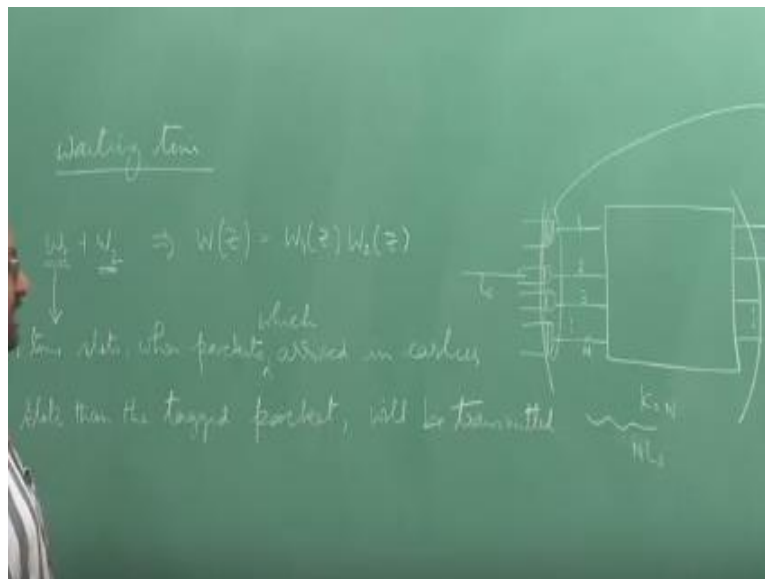 Waiting time
W₁ + W₂ ⇒ W(z) = W₁(z) W₂(z)
which
time slots, when packets ^ arrived in earlier
slots than the tagged packet, will be transmitted
1
2
3
N
K, N